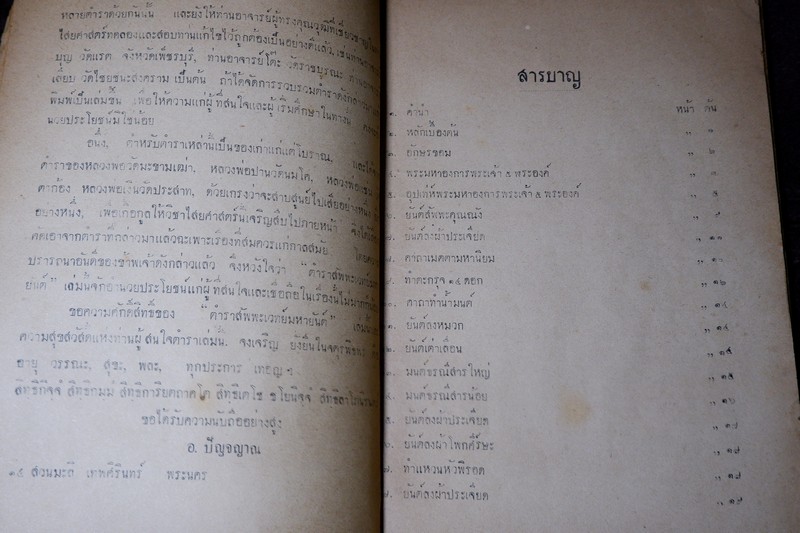 หลายตำราด้วยกันนั้น และยังให้ท่านอาจารย์ผู้ทรงคุณวุฒิที่เชี่ยวชาญใน
ไสยศาสตร์ทดลองและสอบทานแก้ไขไว้ถูกต้องเป็นอย่างดีแล้ว, เช่นท่านอาจารย์
บุญ วัดแรต จังหวัดเพ็ชรบุรี, ท่านอาจารย์โต๊ะ วัดราชบูรณะ
เลี่ยม วัดไชยชนะสงคราม เป็นต้น ถ้าได้จัดการรวบรวมตำราดังกล่าว
พิมพ์เป็นเล่มขึ้น เพื่อให้ความแก่ผู้ที่สนใจและผู้เริ่มศึกษาในทางนี้
นวยประโยชน์มิใช่น้อย
อนึ่ง, ตำหรับตำราเหล่านี้เป็นของเก่าแก่แต่โบราณ,
ตำราของหลวงพ่อวัดมะขามเฒ่า, หลวงพ่อปานวัดบนมโค, หลวงพ่อ
คำก้อง หลวงพ่อเงินวัดประสาท, ด้วยเกรงว่าจะสาบสูญไปเสียอย่างหนึ่ง
อย่างหนึ่ง, เพื่อเกื้อกูลให้วิชาไสยศาสตร์นี้เจริญสืบไปภายหน้า จึงได้
คัดเอาจากตำราที่กล่าวมาแล้วฉะเพาะเรื่องที่สมควรแก่กาลสมัย
ปรารถนาอันดีของข้าพเจ้าดังกล่าวแล้ว จึงหวังใจว่า " ตำราสัพพะเวทย์มหา
ยันต์ " เล่มนี้จักอำนวยประโยชน์แก่ผู้ที่สนใจและเชื่อถือในเรื่องนี้ไม่มากก็
ขอความศักดิ์สิทธิ์ของ " ตำราสัพพะเวทย์มหายันต์ " เล่มนี้
ความสุขสวัสดิ์แห่งท่านผู้สนใจตำราเล่มนี้. จงเจริญ ยั่งยืนในจตุรพิธพร
อายุ วรรณะ, สุขะ, พละ, ทุกประการ เทอญ ฯ
สิทธิกิจจํ สิทธิกมมํ สิทธิการิยตถาคโต สิทธิเตโช ชโยนิจจํ สิทธิลาโภ
ขอได้รับความนับถืออย่างสูง
อ. ปัญจญาณ
๑๕ สวนมะลิ เทพศิรินทร์ พระนคร
สารบาญ
คำนำ หน้า ต้น
หลักเบื้องต้น " ๑
อักษรขอม " ๒
พระมหาองการพระเจ้า ๕ พระองค์ "
อุปเท่ห์พระมหาองการพระเจ้า ๕ พระองค์ "
ยันต์สัพะคุณณัง " ๙
ยันต์ลงผ้าประเจียด " ๑๑
คาถาเมตตามหานิยม " ๑๑
ทำตะกรุจ ๑๔ ดอก " ๑๒
คาถาทำน้ำมนต์ "
ยันต์ลงหมวก " ๑๔
ยันต์เต่าเลือน " ๑๔
มนต์ธรณีสารใหญ่ " ๑๕
มนต์ธรณีสารน้อย "
ยันต์ลงผ้าประเจียด "
ยันต์ลงผ้าโพกศีร์ษะ "
ทำแหวนหัวพิรอด "
ยันต์ลงผ้าประเจียด " ๑๙